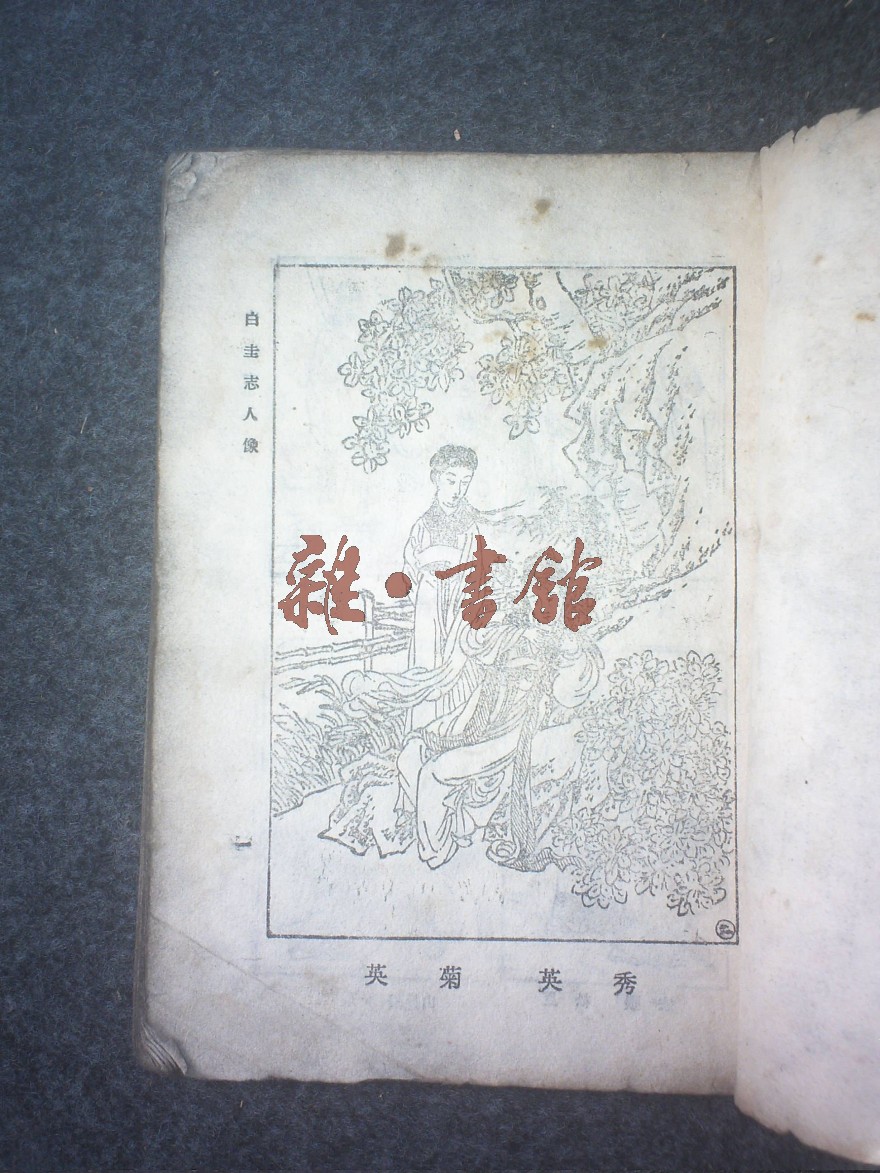 白圭志人像
雜·書館
一
秀英　菊英